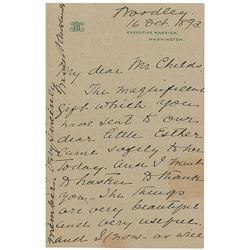 Woodley
16 Oct. 1893
EXECUTIVE MANSION,
WASHINGTON.
My dear Mr Childs.
The magnificent
gift which you
have sent to our
dear little Esther
came safely to her
today. And I want
to hasten to thank
you. The things
are very beautiful
and very useful.
and I know as well